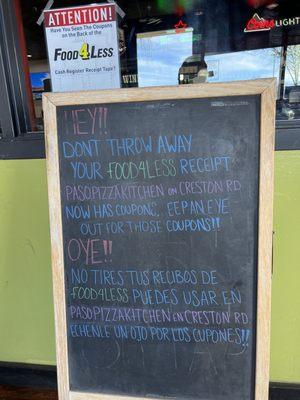 ATTENTION!
Have You Seen Our Coupons
on the Back of Your
Food4Less
Cash Register Receipt Tape?
LIGHT
WIN
HEY!!
DONT THROW AWAY
YOUR FOOD4LESS RECEIPT
PASOPIZZAKITCHEN ON CRESTON RD
NOW HAS COUPONS. EEPAN EYE
OUT FOR THOSE COUPONS!!
OYE!!
NO TIRES TUS RECIBOS DE
FOOD4LESS PUEDES USAR EN
PASOPIZZAKITCHEN ON CRESTON RD
ECHENLE UN OJO POR LOS CUPONES!!